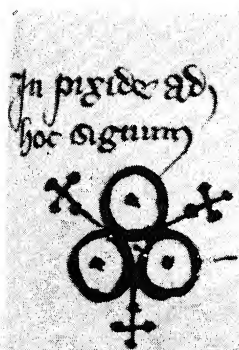 In pixide ad
hoc signum